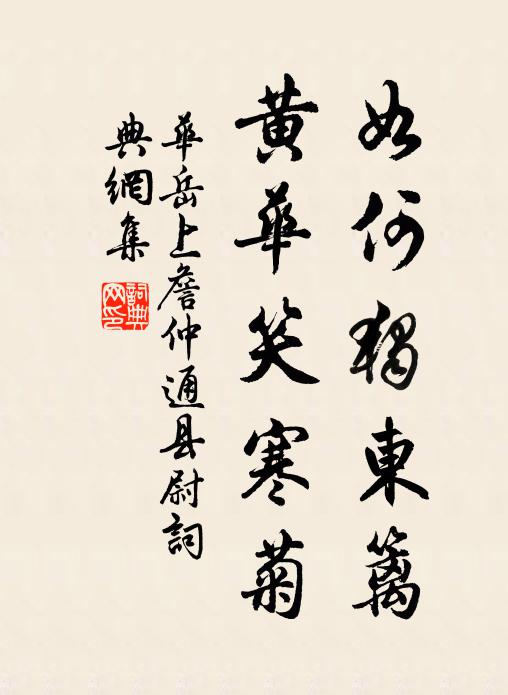 如何獨東籬
黃華笑寒菊
華岳上詹仲通县尉詞
典網集
詞典網印